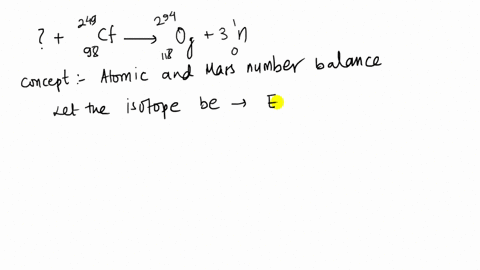 ? + ²⁴⁹₉₈Cf → ²⁹⁴₁₁₈Og + 3 ¹₀n
concept :- Atomic and Mass number balance
Let the isotope be → E